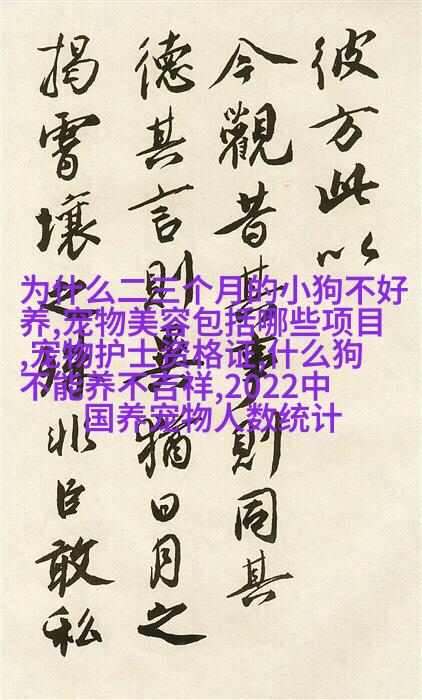 彼方此以
今觀昔其事則同其
德其言則善猶日月之
揭霄壤非臣敢私
为什么二三个月的小狗不好
养,宠物美容包括哪些项目
,宠物护士资格证,什么狗
不能养不吉祥,2022中
国养宠物人数统计